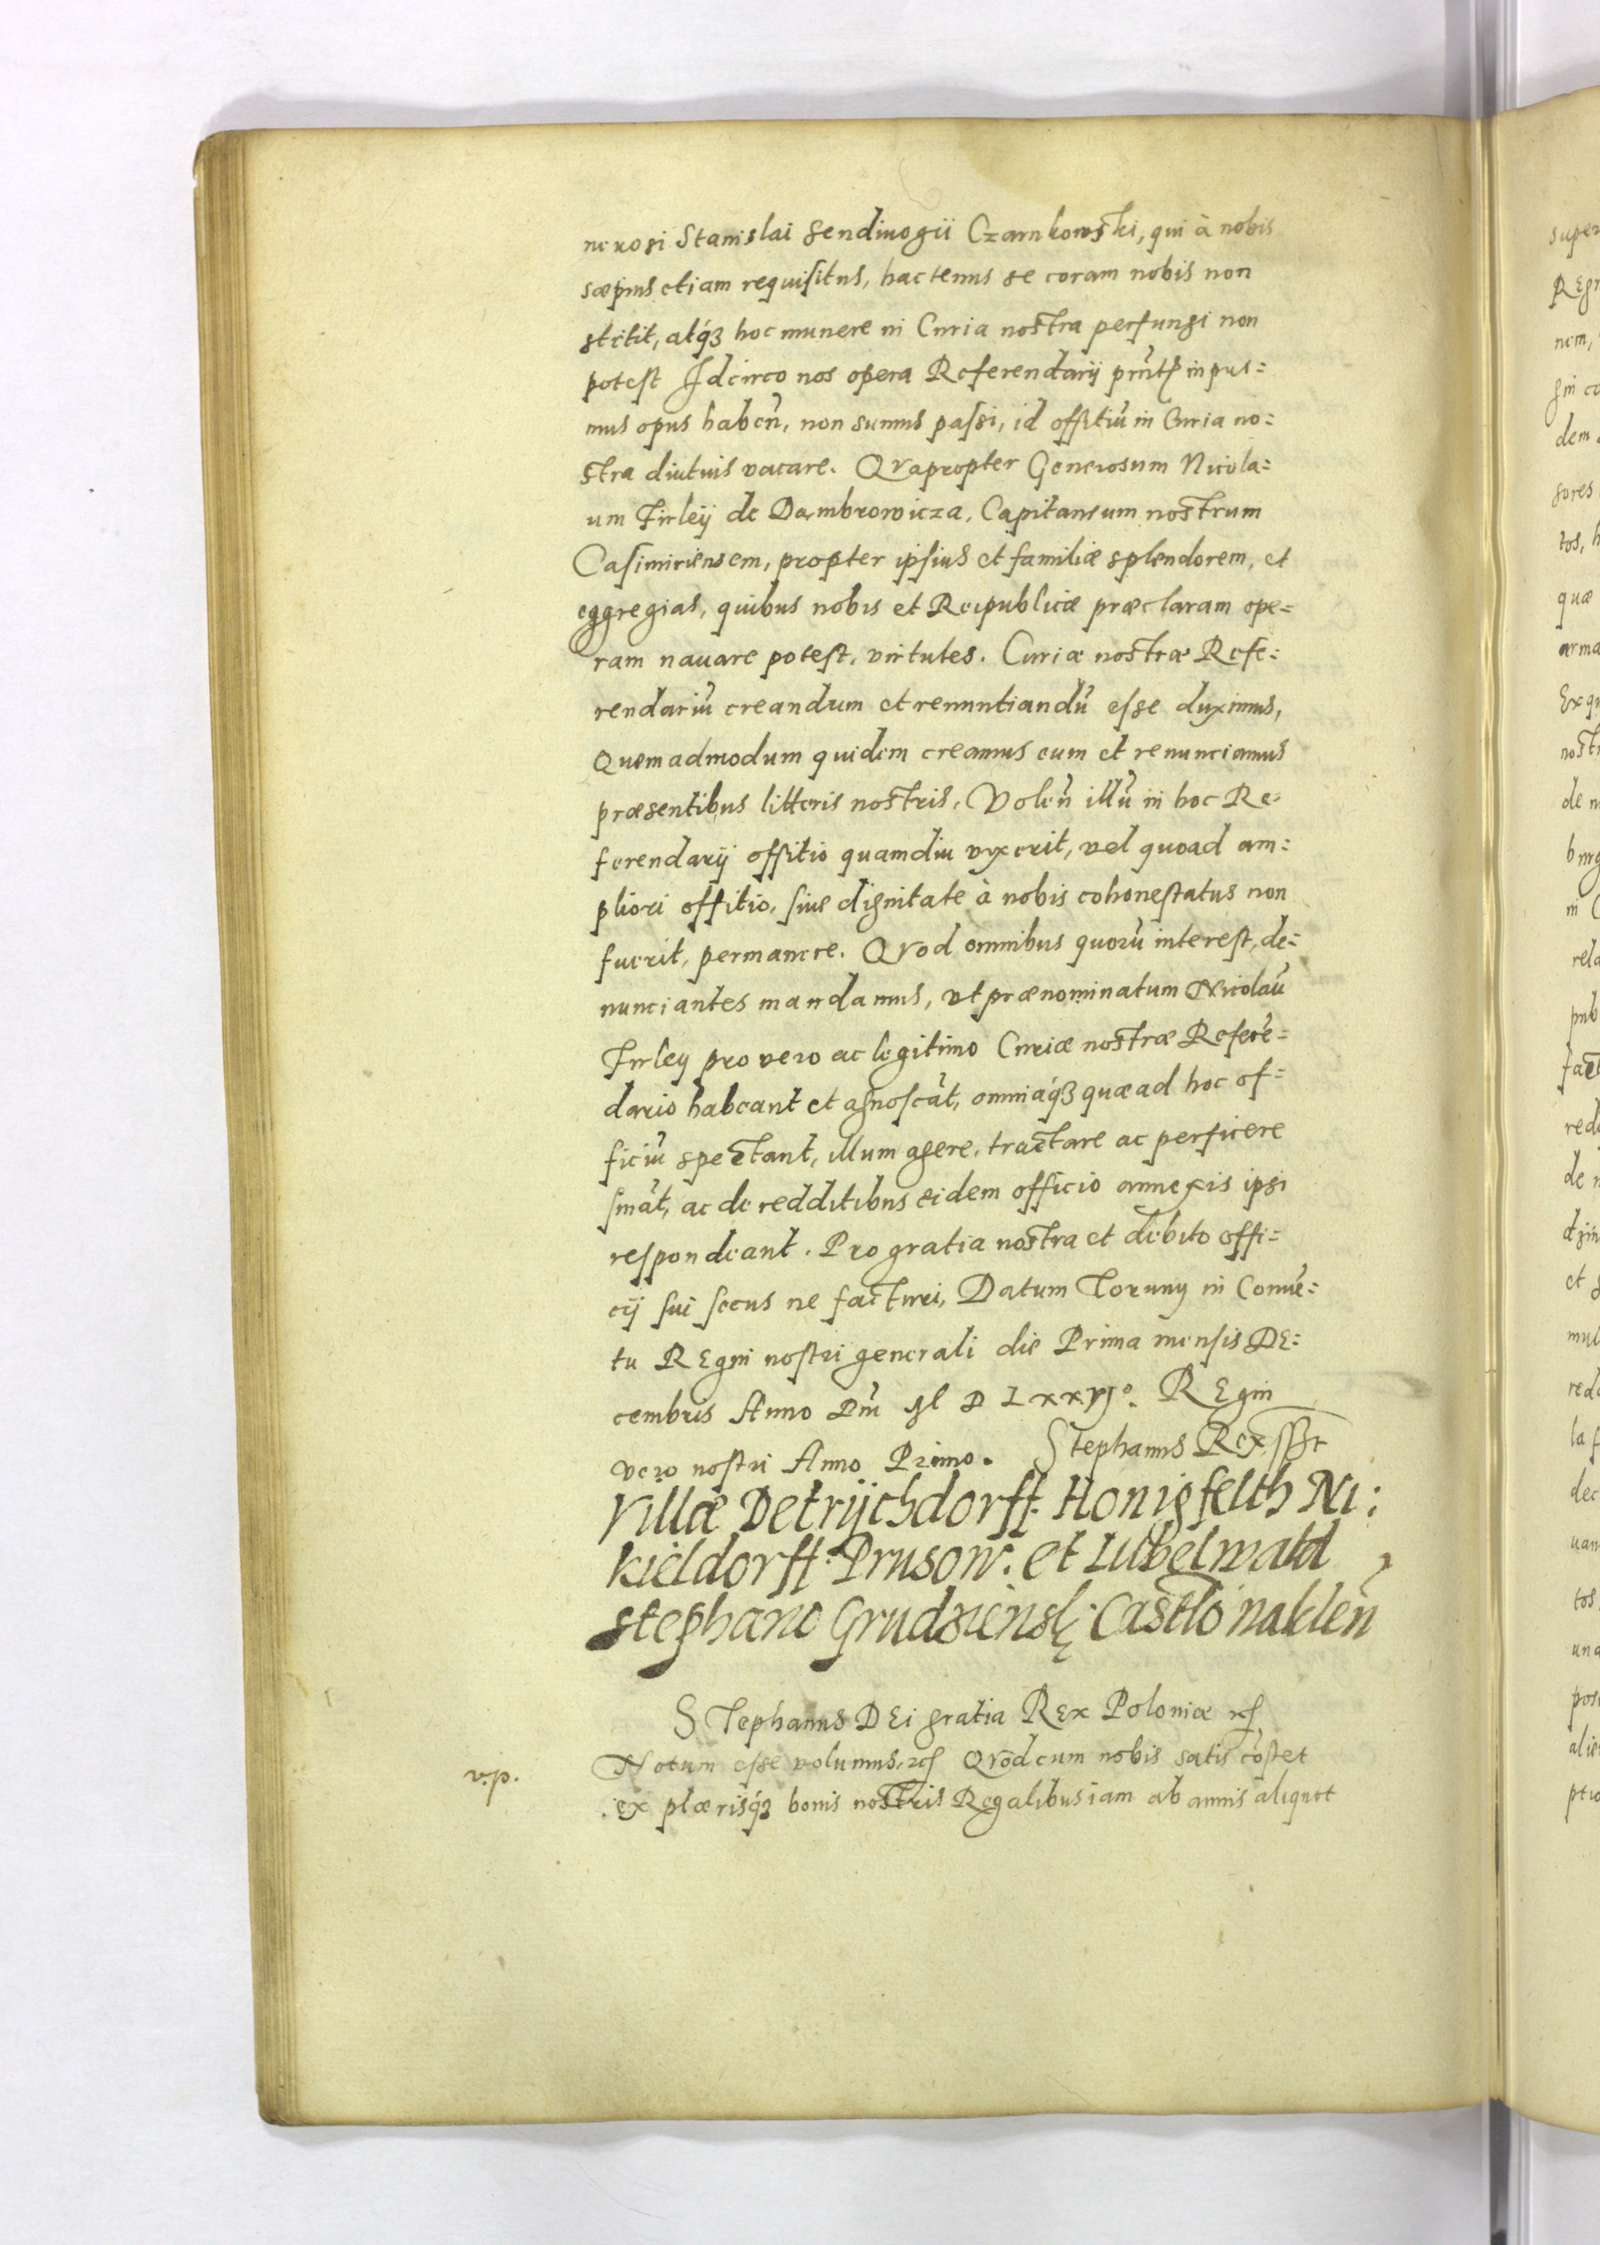 nerosi Stanislai Sendivogii Czarnkowski, qui à nobis
sæpius etiam requisitus, hactenus se coram nobis non
stetit, atq́ꝫ hoc munere in Curia nostra perfungi non
potest Idcirco nos opera Referendarij in pus=
mus opus habeñ, non sumus passi, id offitiũ in Curia no=
stra diutius vacare. Qvapropter Generosum Nicola=
um Firleÿ de Dambrowicza, Capitaneum nostrum
Casimiriensem, propter ipsius et familiæ splendorem, et
eggregias, quibus nobis et Reipublicæ præclaram ope=
ram nauare potest, virtutes. Curiæ nostræ Refe=
rendariũ creandum et renuntiandũ esse duximus,
Quemadmodum quidem creamus eum et renunciamus
præsentibus litteris nostris, Voleñ illũ in hoc Re=
ferendarij offitio quamdiu vyxerit, vel quoad am=
pliori offitio, siue dignitate à nobis cohonestatus non
fuerit, permanere. Qvod omnibus quorũ interest, de=
nunciantes mandamus, vt prænominatum Nicolaũ
Firley pro vero ac legitimo Curiæ nostræ Referẽ=
dario habeant et agnoscãt, omniaq́ꝫ quæ ad hoc of=
ficiũ spectant, illum agere, tractare ac perficere
sinãt, ac de redditibus eidem officio annexis ipsi
respondeant. Pro gratia nostra et debito offi=
cij sui secus ne facturi, Datum Toruny in Conuẽ=
tu REgni nostri generali die Prima mensis DE=
cembris Anno Dñi M D LXXVJº. REgni
vero nostri Anno Primo. Stephanus Rex sst
Villæ Detrijchdorff. Honigfelth Ni:
kieldorff. Prusow. et Lubelwald
Stephano Grudzienslę Castlo nakleñ
STephanus DEi gratia REx Poloniæ ꝛc
v.p. Notum esse volumus, ꝛc Qvod cum nobis satis cõstet
ex plærisq́ꝫ bonis nostris Regalibus iam ab annis aliquot